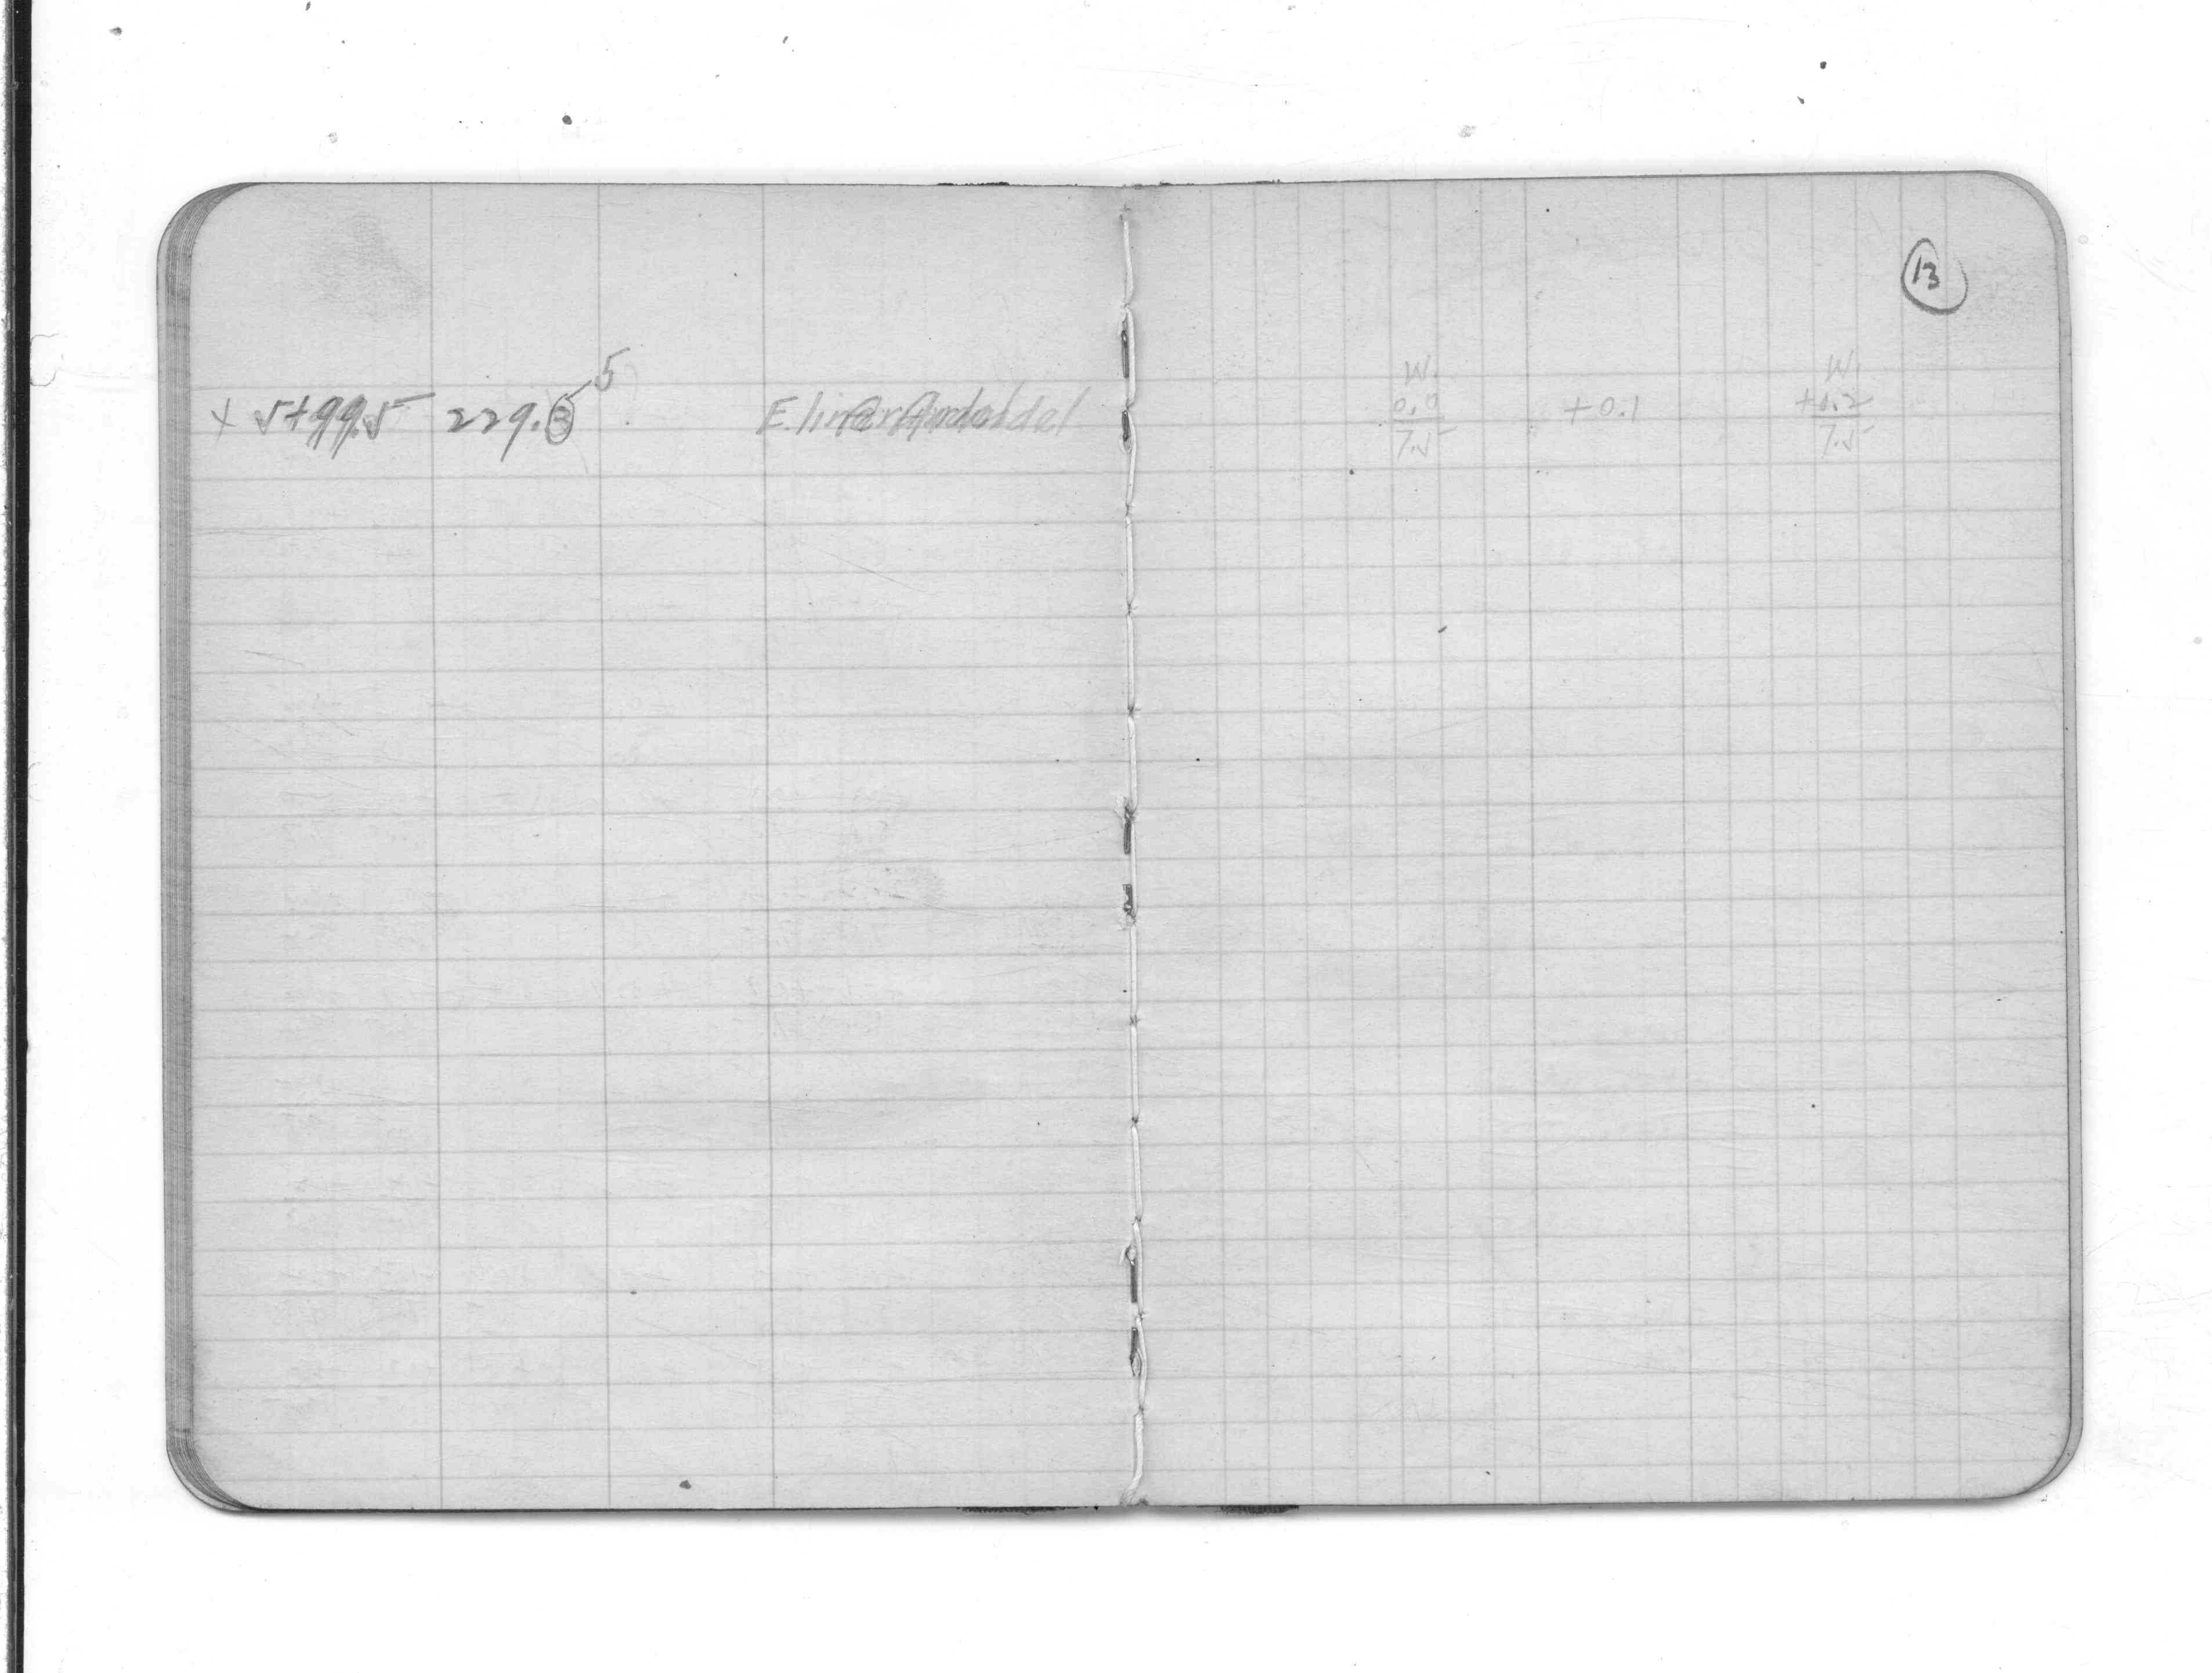 13
5
W. W.
x 5+99.5 229. E. line 0.0 +0.1 +0.2
7.5 7.5